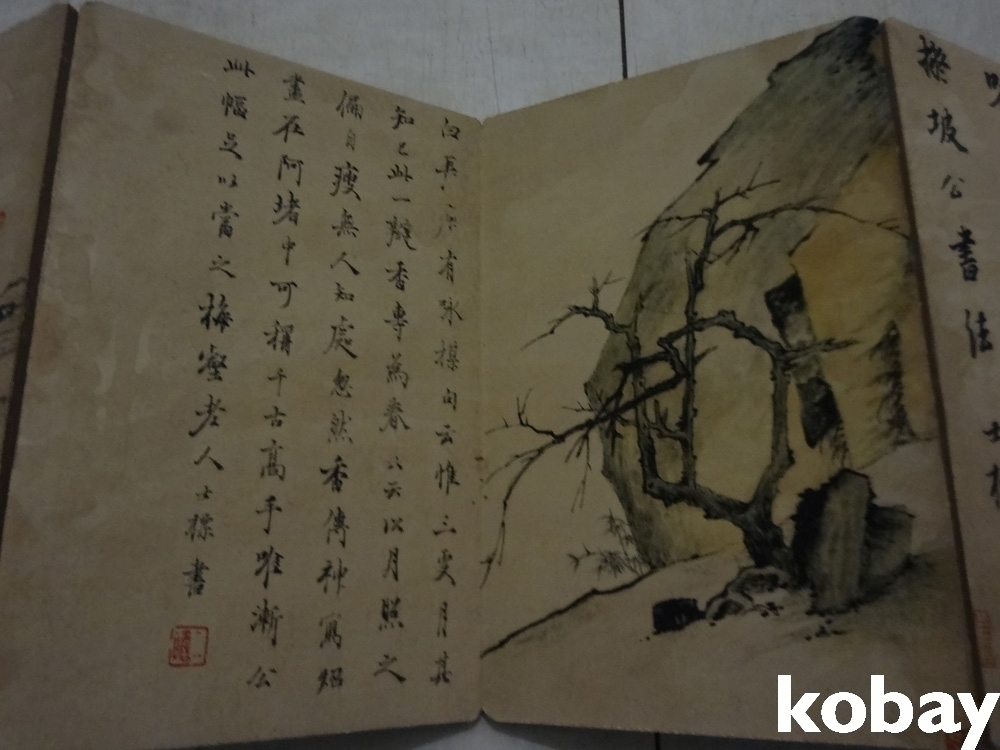 坡公書法
有咏楳句云惟三更月其
知己此一瓣香專為春又云以月照之
偏自瘦無人知處忽然香傳神寫炤
盡在阿堵中可稱千古高手唯漸公
此幅足以當之梅壑老人士標書
kobay